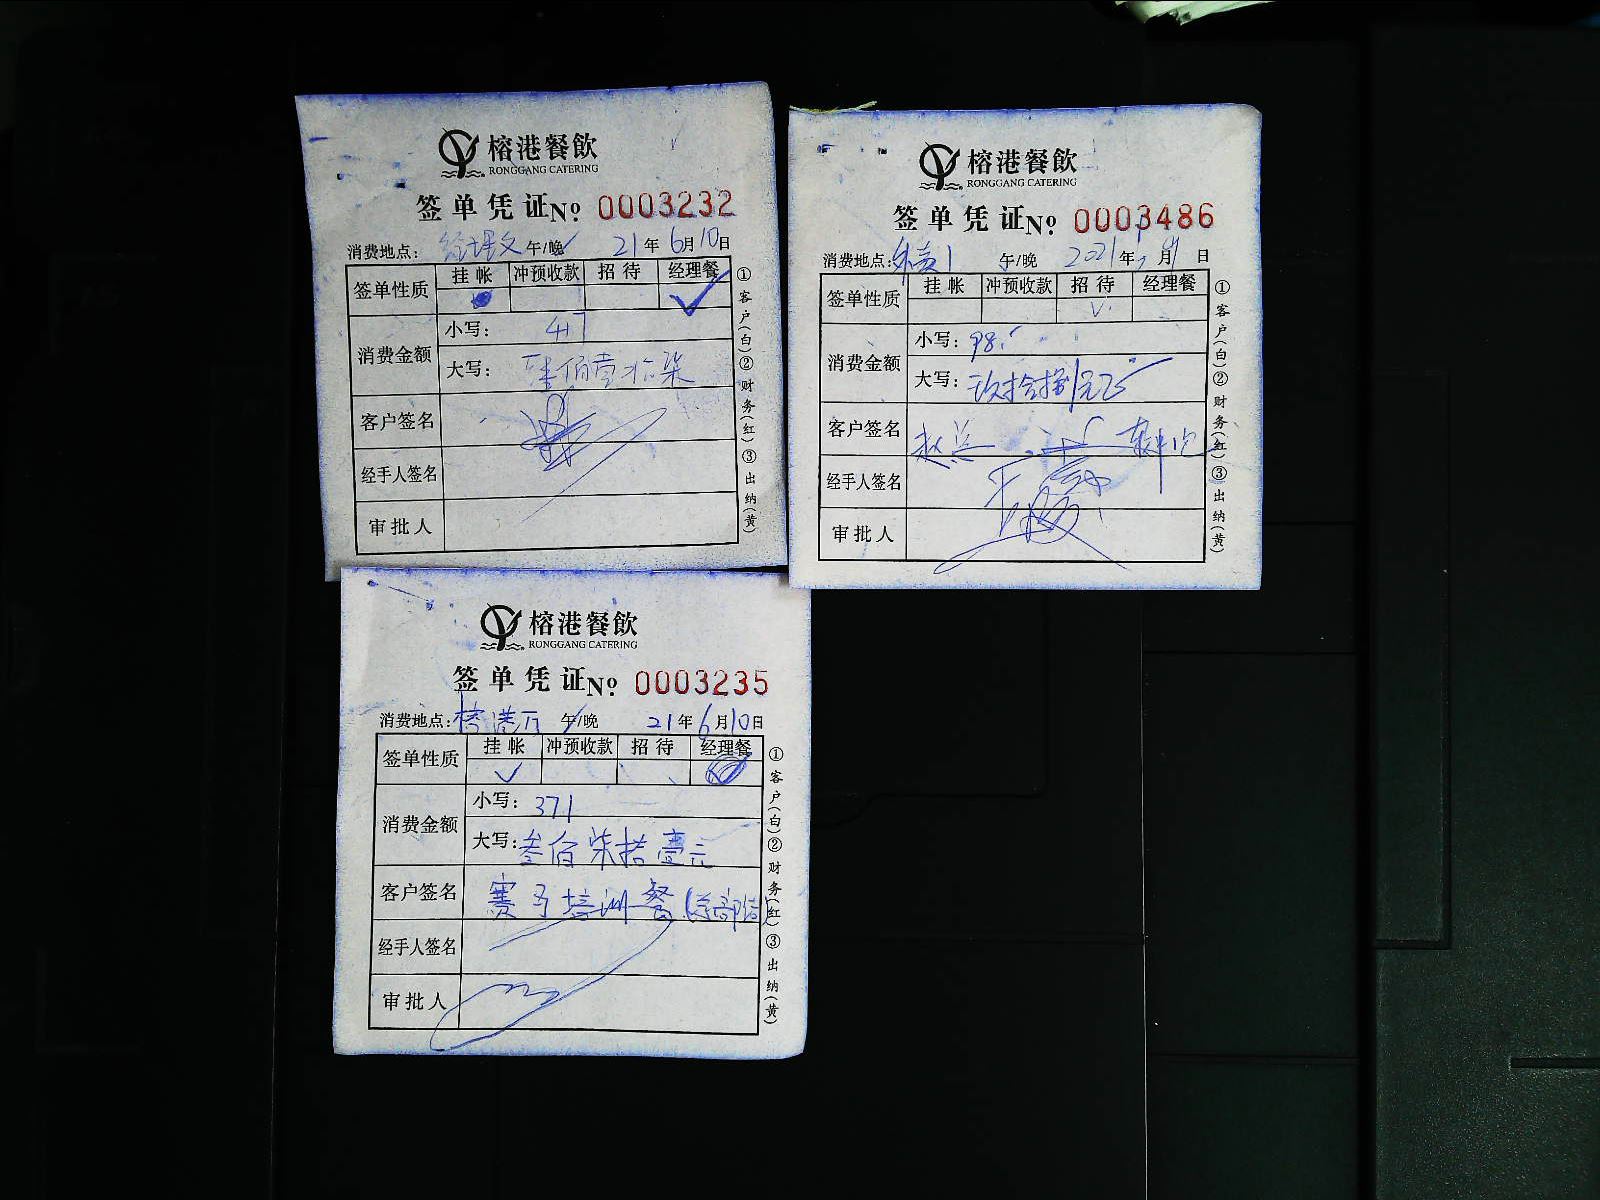 榕港餐飲
RONGGANG CATERING
签单凭证No 0003232
消费地点: 午/晚 21年6月10日
签单性质 挂帐 冲预收款 招待 经理餐
消费金额
小写: 417
大写: 肆佰壹拾柒
客户签名
经手人签名
审批人
①客户(白)②财务(红)③出纳(黄)
榕港餐飲
RONGGANG CATERING
签单凭证No 0003486
消费地点: 午/晚 2021年 月 日
签单性质 挂帐 冲预收款 招待 经理餐
消费金额
小写: 98.
大写:
客户签名 赵总
经手人签名
审批人
①客户(白)②财务(红)③出纳(黄)
榕港餐飲
RONGGANG CATERING
签单凭证No 0003235
消费地点: 榕港厅 午/晚 21年6月10日
签单性质 挂帐 冲预收款 招待 经理餐
消费金额
小写: 371
大写: 叁佰柒拾壹元
客户签名 赛马培训餐(总部结)
经手人签名
审批人
①客户(白)②财务(红)③出纳(黄)